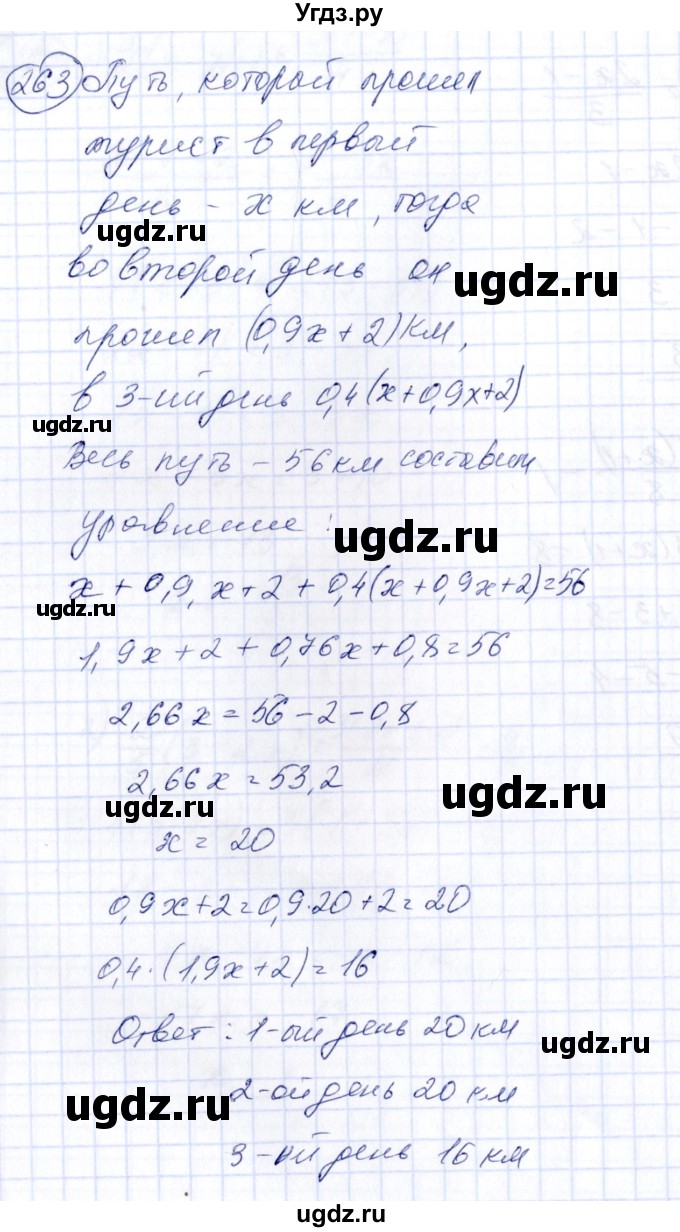 Угдз.ру
263 Путь, который прошел
турист в первый
день - x км, тогда
ugdz.ru
во второй день он
ugdz.ru
прошел (0,9x + 2) км,
в 3-ий день 0,4(x+0,9x+2)
ugdz.ru
Весь путь - 56 км составим
уравнение:
ugdz.ru
x + 0,9, x+2 + 0,4(x+0,9x+2)=56
ugdz.ru
1,9x+2+0,76x+0,8=56
2,66x=56-2-0,8
2,66x=53,2
ugdz.ru
ugdz.ru
x = 20
0,9x+2=0,9·20+2=20
0,4·(1,9x+2)=16
Ответ: 1-ый день 20 км
ugdz.ru
2-ой день 20 км
ugdz.ru
3-ий день 16 км
ugdz.ru